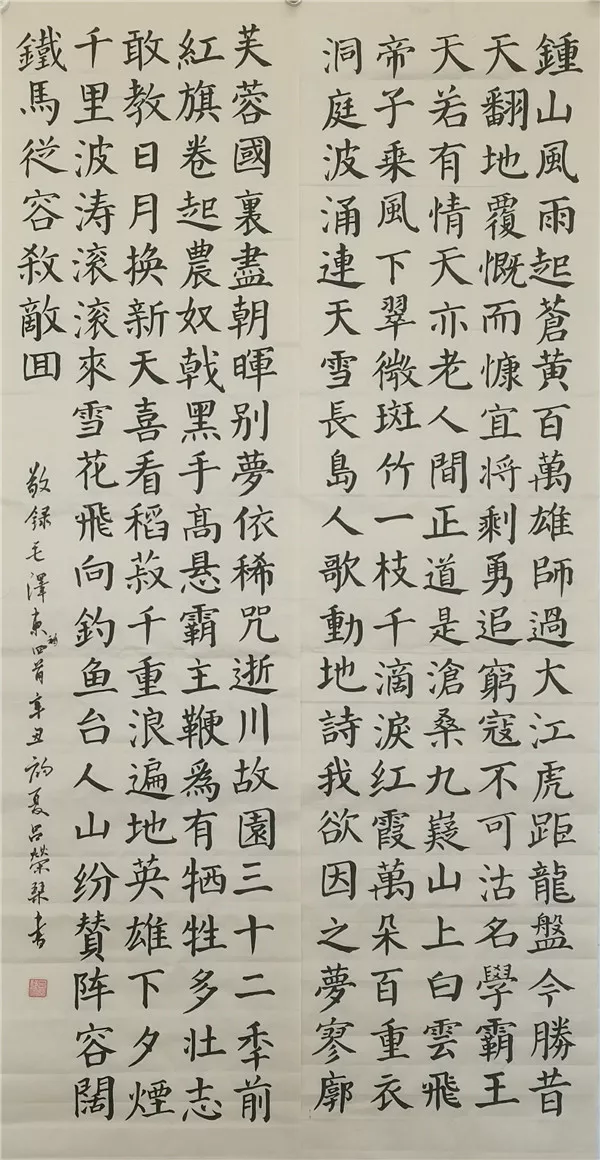 鍾山風雨起蒼黄百萬雄師過大江虎距龍盤今勝昔
天翻地覆慨而慷宜将剩勇追窮寇不可沽名學霸王
天若有情天亦老人間正道是滄桑九嶷山上白雲飛
帝子乘風下翠微斑竹一枝千滴淚红霞萬朵百重衣
洞庭波涌連天雪長島人歌動地詩我欲因之夢寥廓
芙蓉國裏盡朝暉别夢依稀咒逝川故園三十二秊前
紅旗卷起農奴戟黑手高悬霸主鞭爲有牺牲多壮志
敢教日月换新天喜看稻菽千重浪遍地英雄下夕煙
千里波涛滚滚來雪花飛向釣鱼台人山纷賛阵容阔
鐵馬従容殺敵囬
敬録毛澤東詩四首辛丑初夏吕榮琴書